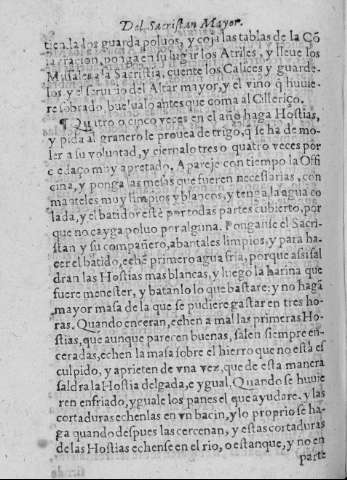 Del Sacristan Mayor.
tienda los guarda poluos, y coja las tablas de la Cõ
sagracion, ponga en su lugar los Atriles, y lleue los
Missales a la Sacristia, cuente los Calices y guarde-
los, y el seruicio del Altar mayor, y el vino q̃ huuie
re sobrado, buelualo antes que coma al Cillerico.
¶ Quatro o cinco veces en el año haga Hostias,
y pida al granero le prouea de trigo, q̃ se ha de mo-
ler a su voluntad, y ciernalo tres o quatro veces por
cedaço muy apretado. Apareje con tiempo la Offi
cina, y ponga las mesas que fueren necessarias, con
manteles muy limpios y blancos, y tenga la agua co
lada, y el batidor estè por todas partes cubierto, por
que no cayga poluo por alguna. Ponganse el Sacri-
stan y su compañero, abantales limpios, y para ha-
cer el batido, eche primero agua fria, porque assi sal
dran las Hostias mas blancas, y luego la harina que
fuere menester, y batanlo lo que bastare: y no haga
mayor masa de la que se pudiere gastar en tres ho-
ras. Quando enceran, echen a mal las primeras Ho-
stias, que aunque parecen buenas, salen siempre en-
ceradas, echen la masa sobre el hierro que no està es
culpido, y aprieten de vna vez, que de esta manera
saldra la Hostia delgada, e ygual. Quando se huuie
ren enfriado, yguale los panes el que ayudare, y las
cortaduras echenlas en vn bacin, y lo proprio se ha-
ga quando despues las cercenan, y estas cortaduras
de las Hostias echense en el rio, o estanque, y no en
parte